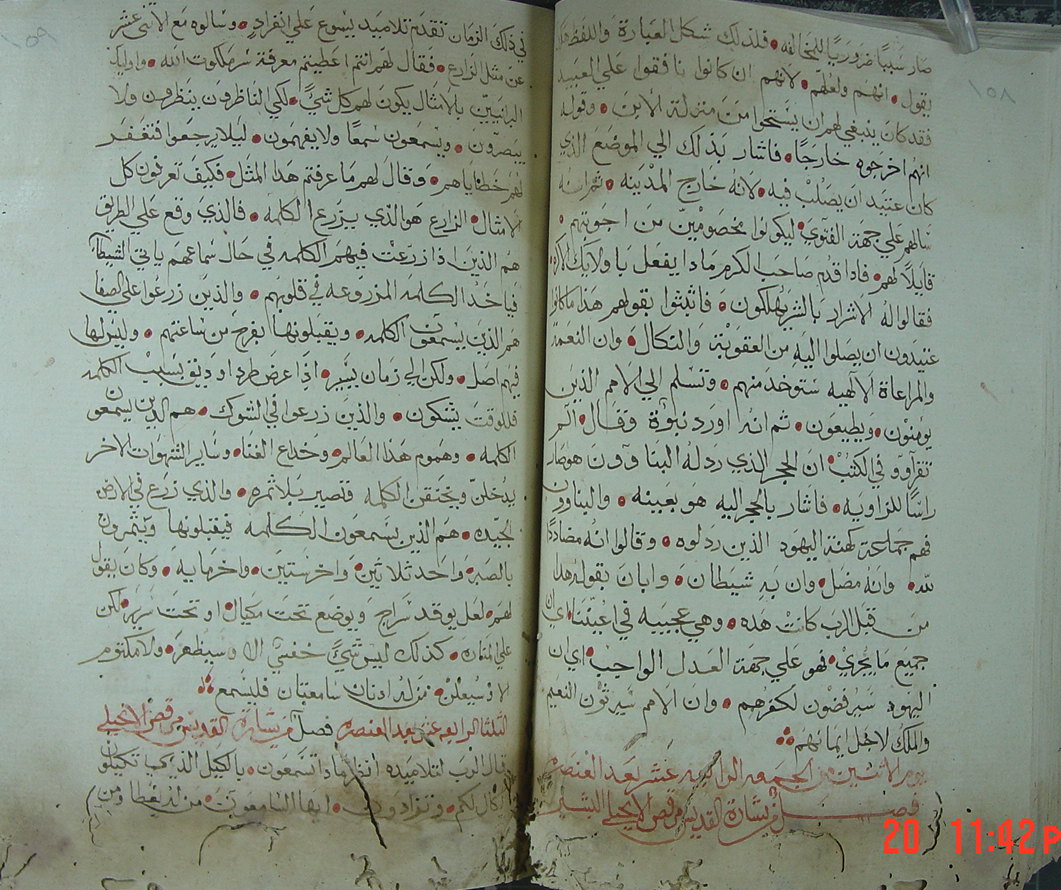 صار سببًا ضروريًا للمخالفه • فلذلك شكل العبارة واللفظ
يقول • انهم ولعلهم • لانهم ان كانوا نافقوا علي العبيد
فقد كان ينبغي لهم ان يستحوا من منزلة الابن • وقوله
انهم اخرجوه خارجًا • فاشار بذلك الي الموضع الذي
كان عتيد ان يصلب فيه • لانه خارج المدينه • ثم انه
سالهم علي جهة الفتوي • ليكونوا مخصومين من اجوبتهم •
قايلًا لهم • فاذا قدم صاحب الكرم ماذا يفعل باولايك الاكره
فقالوا له الاشرار بالشر يهلكون • فاثبتوا بقولهم هذا ما كانوا
عتيدون ان يصلوا اليه من العقوبة والنكال • وان النعمة
والمراعاة الالهيه ستوخد منهم • وتسلم الي الامم الذين
يومنون • ويطيعون • ثم انه اورد نبوة وقال • الم
تقراوو في الكتب • ان الحجر الذي ردله البناوون هو صار
راسًا للزاويه • فاشار بالحجر اليه هو بعينه • والبناوون
فهم جماعة كهنة اليهود الذين ردلوه • وقالوا انه مضاددًا
لله • وانه مضل • وان به شيطان • وابان بقوله هذا
من قبل الرب كانت هذه • وهي عجيبه في اعيننا • اي ان
جميع ما يجري • فهو علي جهة العدل الواجب • اي ان
اليهود سيرفضون لكفرهم • وان الامم سيرثون النعيم
والملك لاجل ايمانهم
يوم الاثنين من الجمعه الرابعه عشر بعد العنصره
فصل من بشارة القديس مرقص الانجيلي البشير
في ذلك الزمان تقدم تلاميد يسوع علي انفراد • وسالوه مع الاثني عشر
عن مثل الزارع • فقال لهم انتم اعطيتم معرفة سر ملكوت الله • واوليك
البرانيين بالامثال يكون لهم كل شيٍ • لكي الناظرون ينظرون ولا
يبصرون • ويسمعون سمعًا ولا يفهمون • ليلا يرجعوا فتغفر
لهم خطاياهم • وقال لهم ما عرفتم هذا المثل • فكيف تعرفون كل
الامثال • الزارع هو الذي يزرع الكلمه • فالذي وقع علي الطريق
هم الذين اذا زرعت فيهم الكلمه في حال سماعهم ياتي الشيطان
فياخد الكلمه المزروعه في قلوبهم • والذين زرعوا علي الصفا
هم الذين يسمعون الكلمه • ويقبلونها بفرح من ساعتهم • وليس لها
فيهم اصل • ولكن الي زمان يسير • اذا عرض طرد او ضيق بسبب الكلمه
فللوقت يشكون • والذين زرعوا في الشوك • هم الدين يسمعون
الكلمه • وهموم هذا العالم • وخداع الغنا • وساير الشهوات الاخر
يدخلن ويختنقن الكلمه فتصير بلا ثمره • والذي زرع في الارض
الجيده • هم الذين يسمعون الكلمه فيقبلونها ويثمرون
بالصبر • واحد ثلاثين • واخر ستين • واخر مايه • وكان يقول
لهم • لعل يوقد سراج ويوضع تحت مكيال • او تحت سرير • لكن
علي المناره • كذلك ليس شيٍ خفي الا وسيظهر • ولا مكتوم
الا وسيعلن • من له ادنان سامعتان فليسمع
الثلثا الرابعه عشر بعد العنصره فصل من بشارة القديس مرقص الانجيلي
قال الرب لتلاميده انظروا مادا تسمعون • بالكيل الذي به تكيلوا
يكال لكم • وتزادون • ايها السامعون • من له يعطا ومن
20 11:42 P